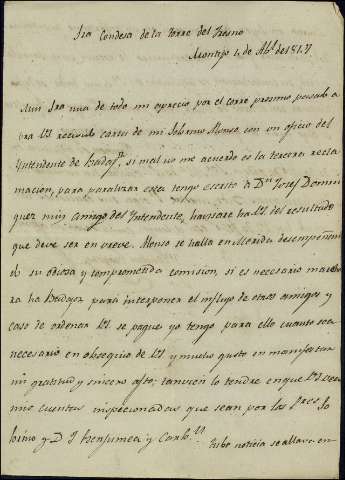 Sra Condesa de la Torre del Fresno
Montijo 4 de Abl. de 1817
Mui Sra mia de todo mi aprecio por el correo proximo pasado a
ra Vs. recivido carta de mi Sobrino Alonso con un oficio del
Yntendente de Badajz. si mal no me acuerdo es la tercera recla
macion, para paralizar esta tengo escrito à Dn. Josef Domin
quez muy amigo del Yntendente, havisare ha Vs. del resultado
que deve ser en breve. Alonso se halla en Merida desempeñan
do su odiosa y comprometida comision, si es necesario marcha
ra ha Badajoz para interponer el influjo de otros amigos y
caso de ordenar Vs. se pague yo tengo para ello cuanto sea
necesario en obsequio de Vs. y mucho gusto en manifestar
mi gratitud y sincero afto; tanvien lo tendre en que Vs.
me cuentas inspecionadas que sean por los Sres. So
brino y D. J. y Carbll.
Tube noticia se allava en